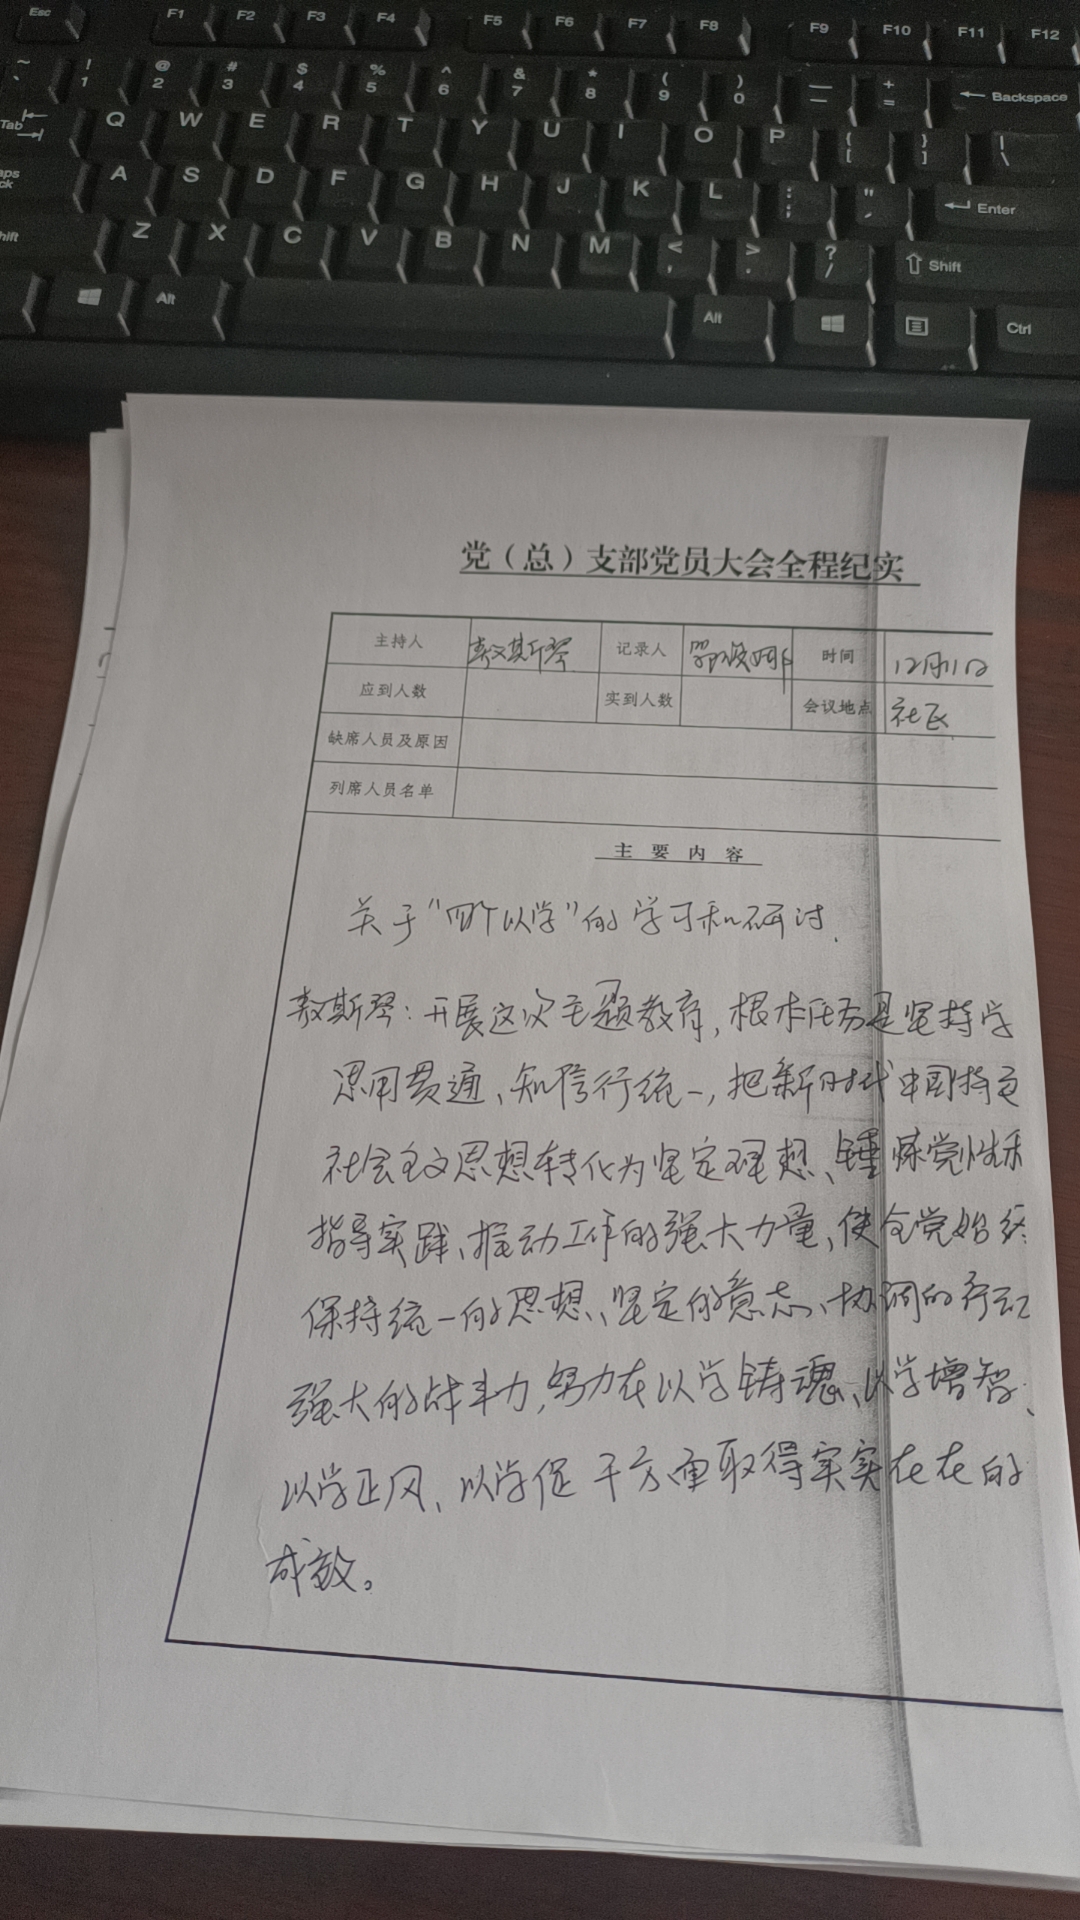 Esc F1 F2 F3 F4 F5 F6 F7 F8 F9 F10 F11 F12
~ ` ! 1 @ 2 # 3 $ 4 % 5 ^ 6 & 7 * 8 ( 9 ) 0 — - + = ← Backspace
Tab Q W E R T Y U I O P { [ } ] | \
aps ck A S D F G H J K L : ; " ' Enter
hift Z X C V B N M < , > . ? / Shift
Alt Alt Ctrl
党（总）支部党员大会全程纪实
主持人 敖斯琴 记录人 时间 12月11日
应到人数 实到人数 会议地点 社区
缺席人员及原因
列席人员名单
主要内容
关于“四个以学”的学习和研讨.
敖斯琴：开展这次主题教育，根本任务是坚持学
思用贯通、知信行统一，把新时代中国特色
社会主义思想转化为坚定理想、锤炼党性和
指导实践、推动工作的强大力量、使全党始终
保持统一的思想、坚定的意志、协调的行动
强大的战斗力，努力在以学铸魂、以学增智、
以学正风、以学促干方面取得实实在在的
成效。